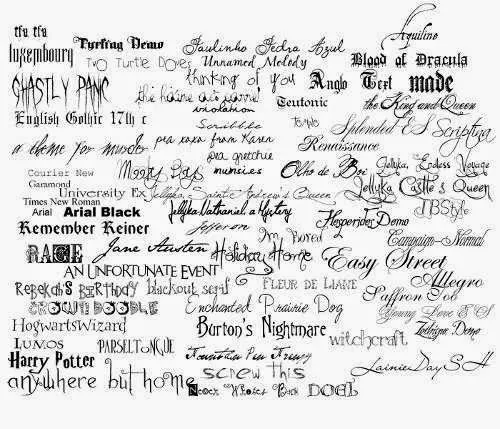 Aquiline
tfu tfu
Turfing Demo
Paulinho Pedra Azul
luxembourg
Two Turtle Doves
Unnamed Melody
Blood of Dracula
thinking of you
Anglo Text
made
GHASTLY PANIC
violation
Teutonic
the King and Queen
English Gothic 17th c
Scribble
Splendid ES
Scriptina
a theme for murder
pea karen from Karen
Renaissance
pea gretchie
Courier New
Moody Gigs
munsies
Olho de Boi
Jellyka, Endless Voyage
Garamond
University Ex
Jellyka, Saint-Andrew's Queen
Jellyka Castle's Queen
Times New Roman
Arial
Arial Black
Jellyka Nathaniel, a Mystery
JBStyle
Remember Reiner
Jefferson
Hesperides Demo
I'm Bored
Campaign-Normal
RAGE
Jane Austen
Holiday Home
Easy Street
AN UNFORTUNATE EVENT
Allegro
Rebekah's Birthday
blackout serif
FLEUR DE LIANE
Saffron Too
CROWN DOODLE
Enchanted Prairie Dog
Young Love ES
HogwartsWizard
Burton's Nightmare
Zodigan Demo
Lumos
PARSELTONGUE
witchcraft
Harry Potter
Fountain Pen Frenzy
LainieDaySH
anywhere but home
screw this
DOEL